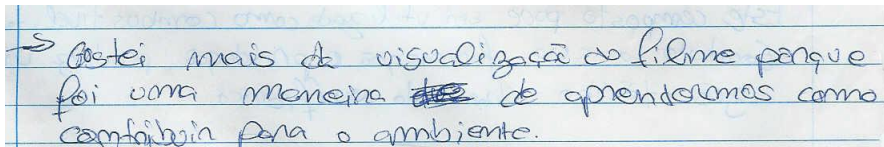 → Gostei mais da visualização do filme porque
foi uma maneira de aprendermos como
contribuir para o ambiente.